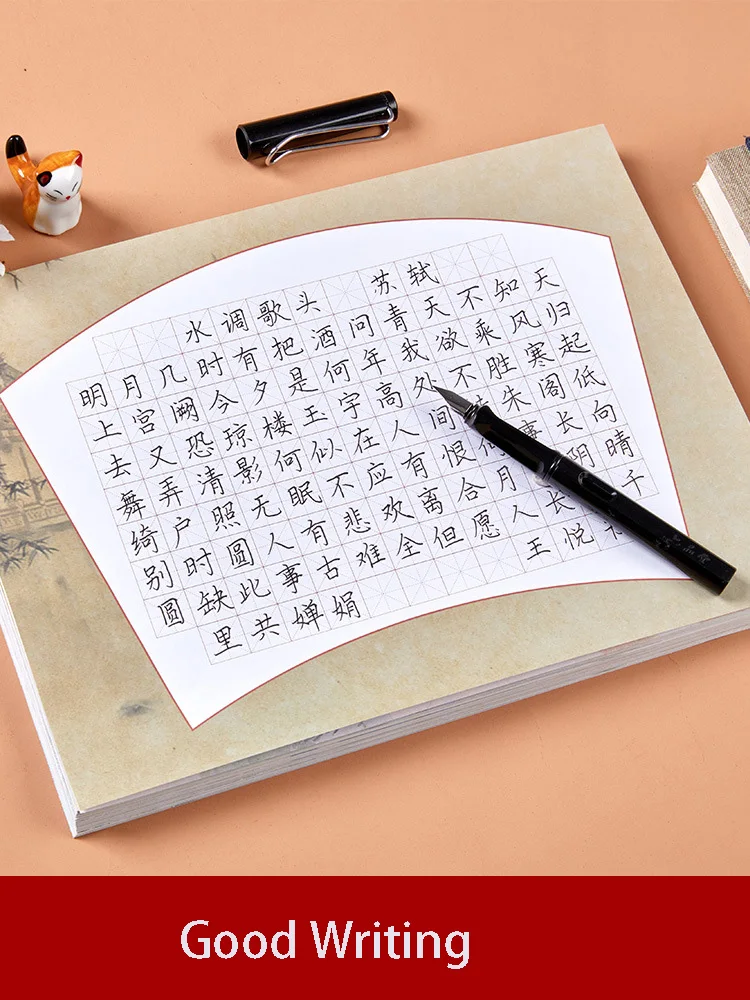 水调歌头 苏轼
明月几时有把酒问青天不知天
上宫阙今夕是何年我欲乘风归
去又恐琼楼玉宇高处不胜寒起
舞弄清影何似在人间朱阁低
绮户照无眠不应有恨何事长向
别时圆人有悲欢离合月阴晴
圆缺此事古难全但愿人长千
里共婵娟 王悦
Good Writing